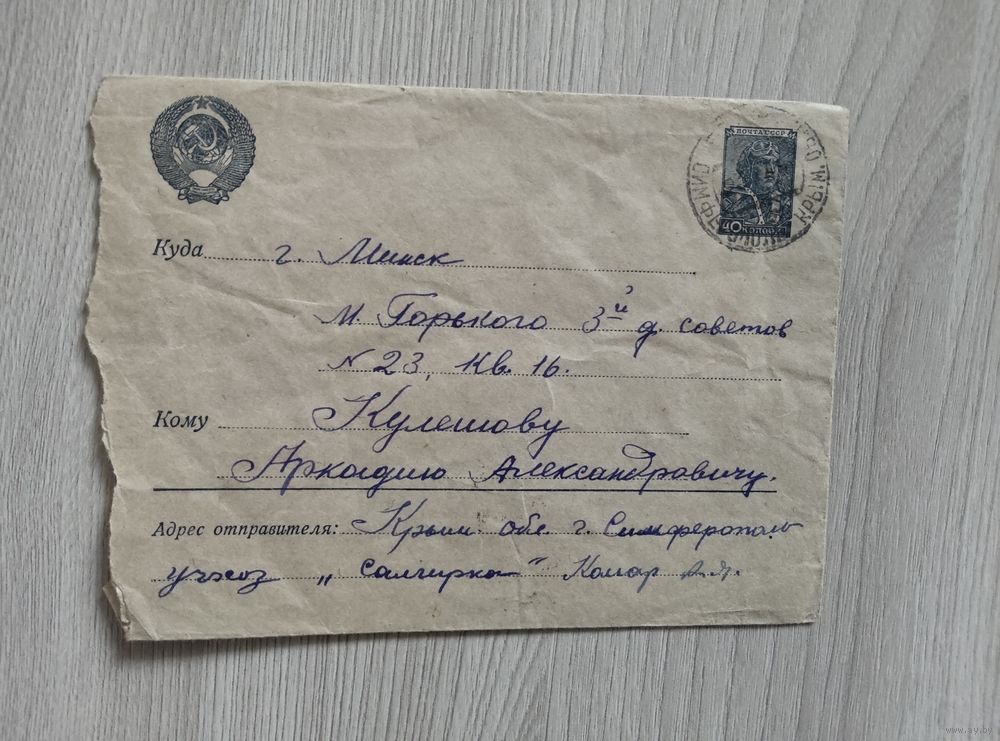 ПОЧТА СССР
40 КОПЕЕК
СИМФЕРОПОЛЬ КРЫМ. ОБ
Куда г. Минск
М. Горького 3й д. советов
N 23, Кв. 16.
Кому Кулешову
Аркадию Александровичу.
Адрес отправителя: Крым. обл. г. Симферополь
учхоз „Салгирка" Комар А.Я.
www.ay.by